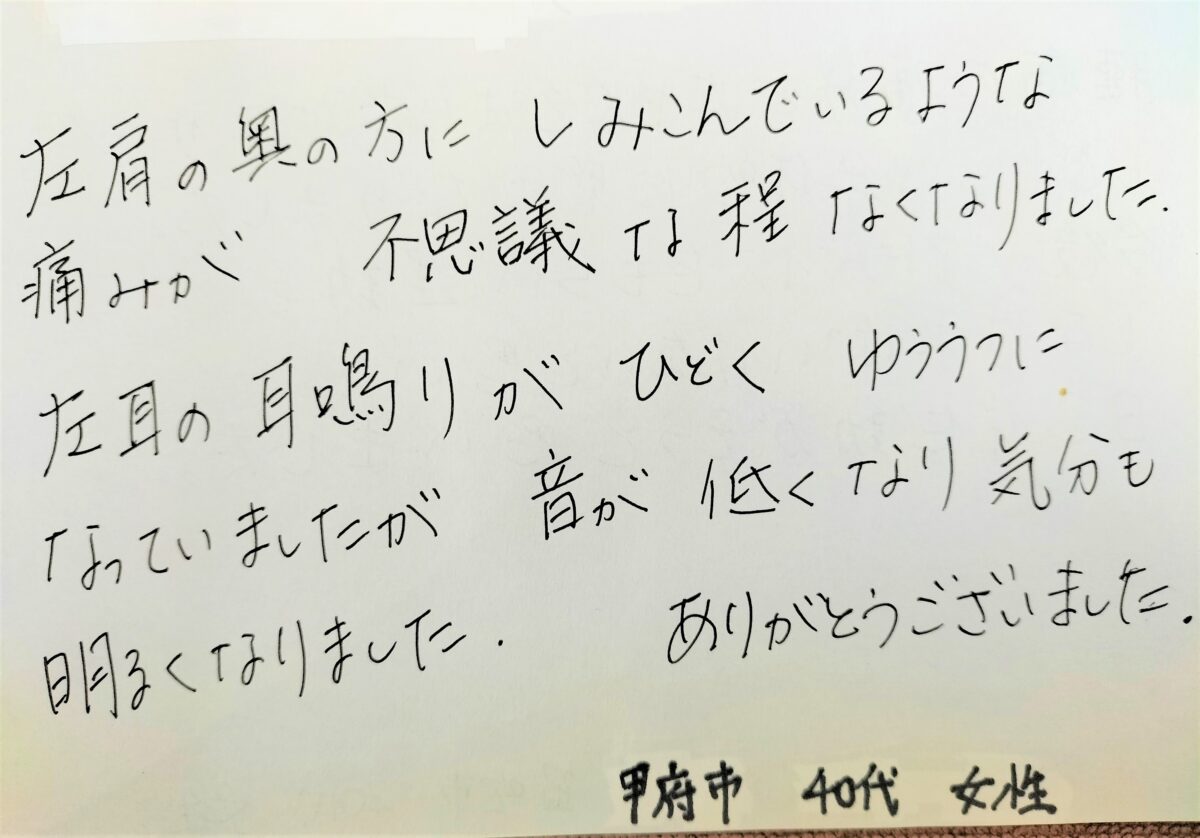 左肩の奥の方に しみこんでいるような
痛みが 不思議な程 なくなりました.
左耳の 耳鳴りが ひどく ゆううつに
なっていましたが 音が 低くなり 気分も
明るくなりました. ありがとうございました.
甲府市 40代 女性